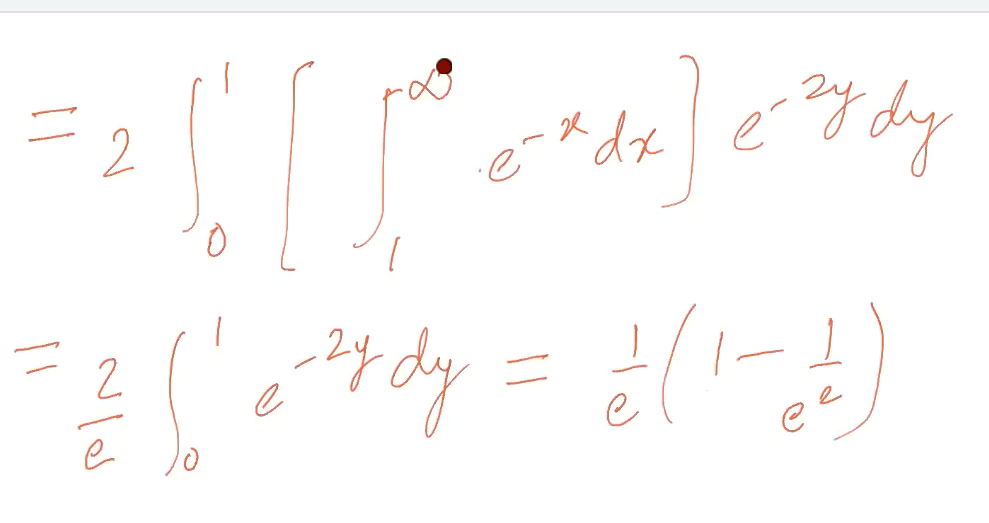 = 2 ∫₀¹ [ ∫₁^∞ e^{-x} dx ] e^{-2y} dy
= 2/e ∫₀¹ e^{-2y} dy = 1/e ( 1 - 1/e² )